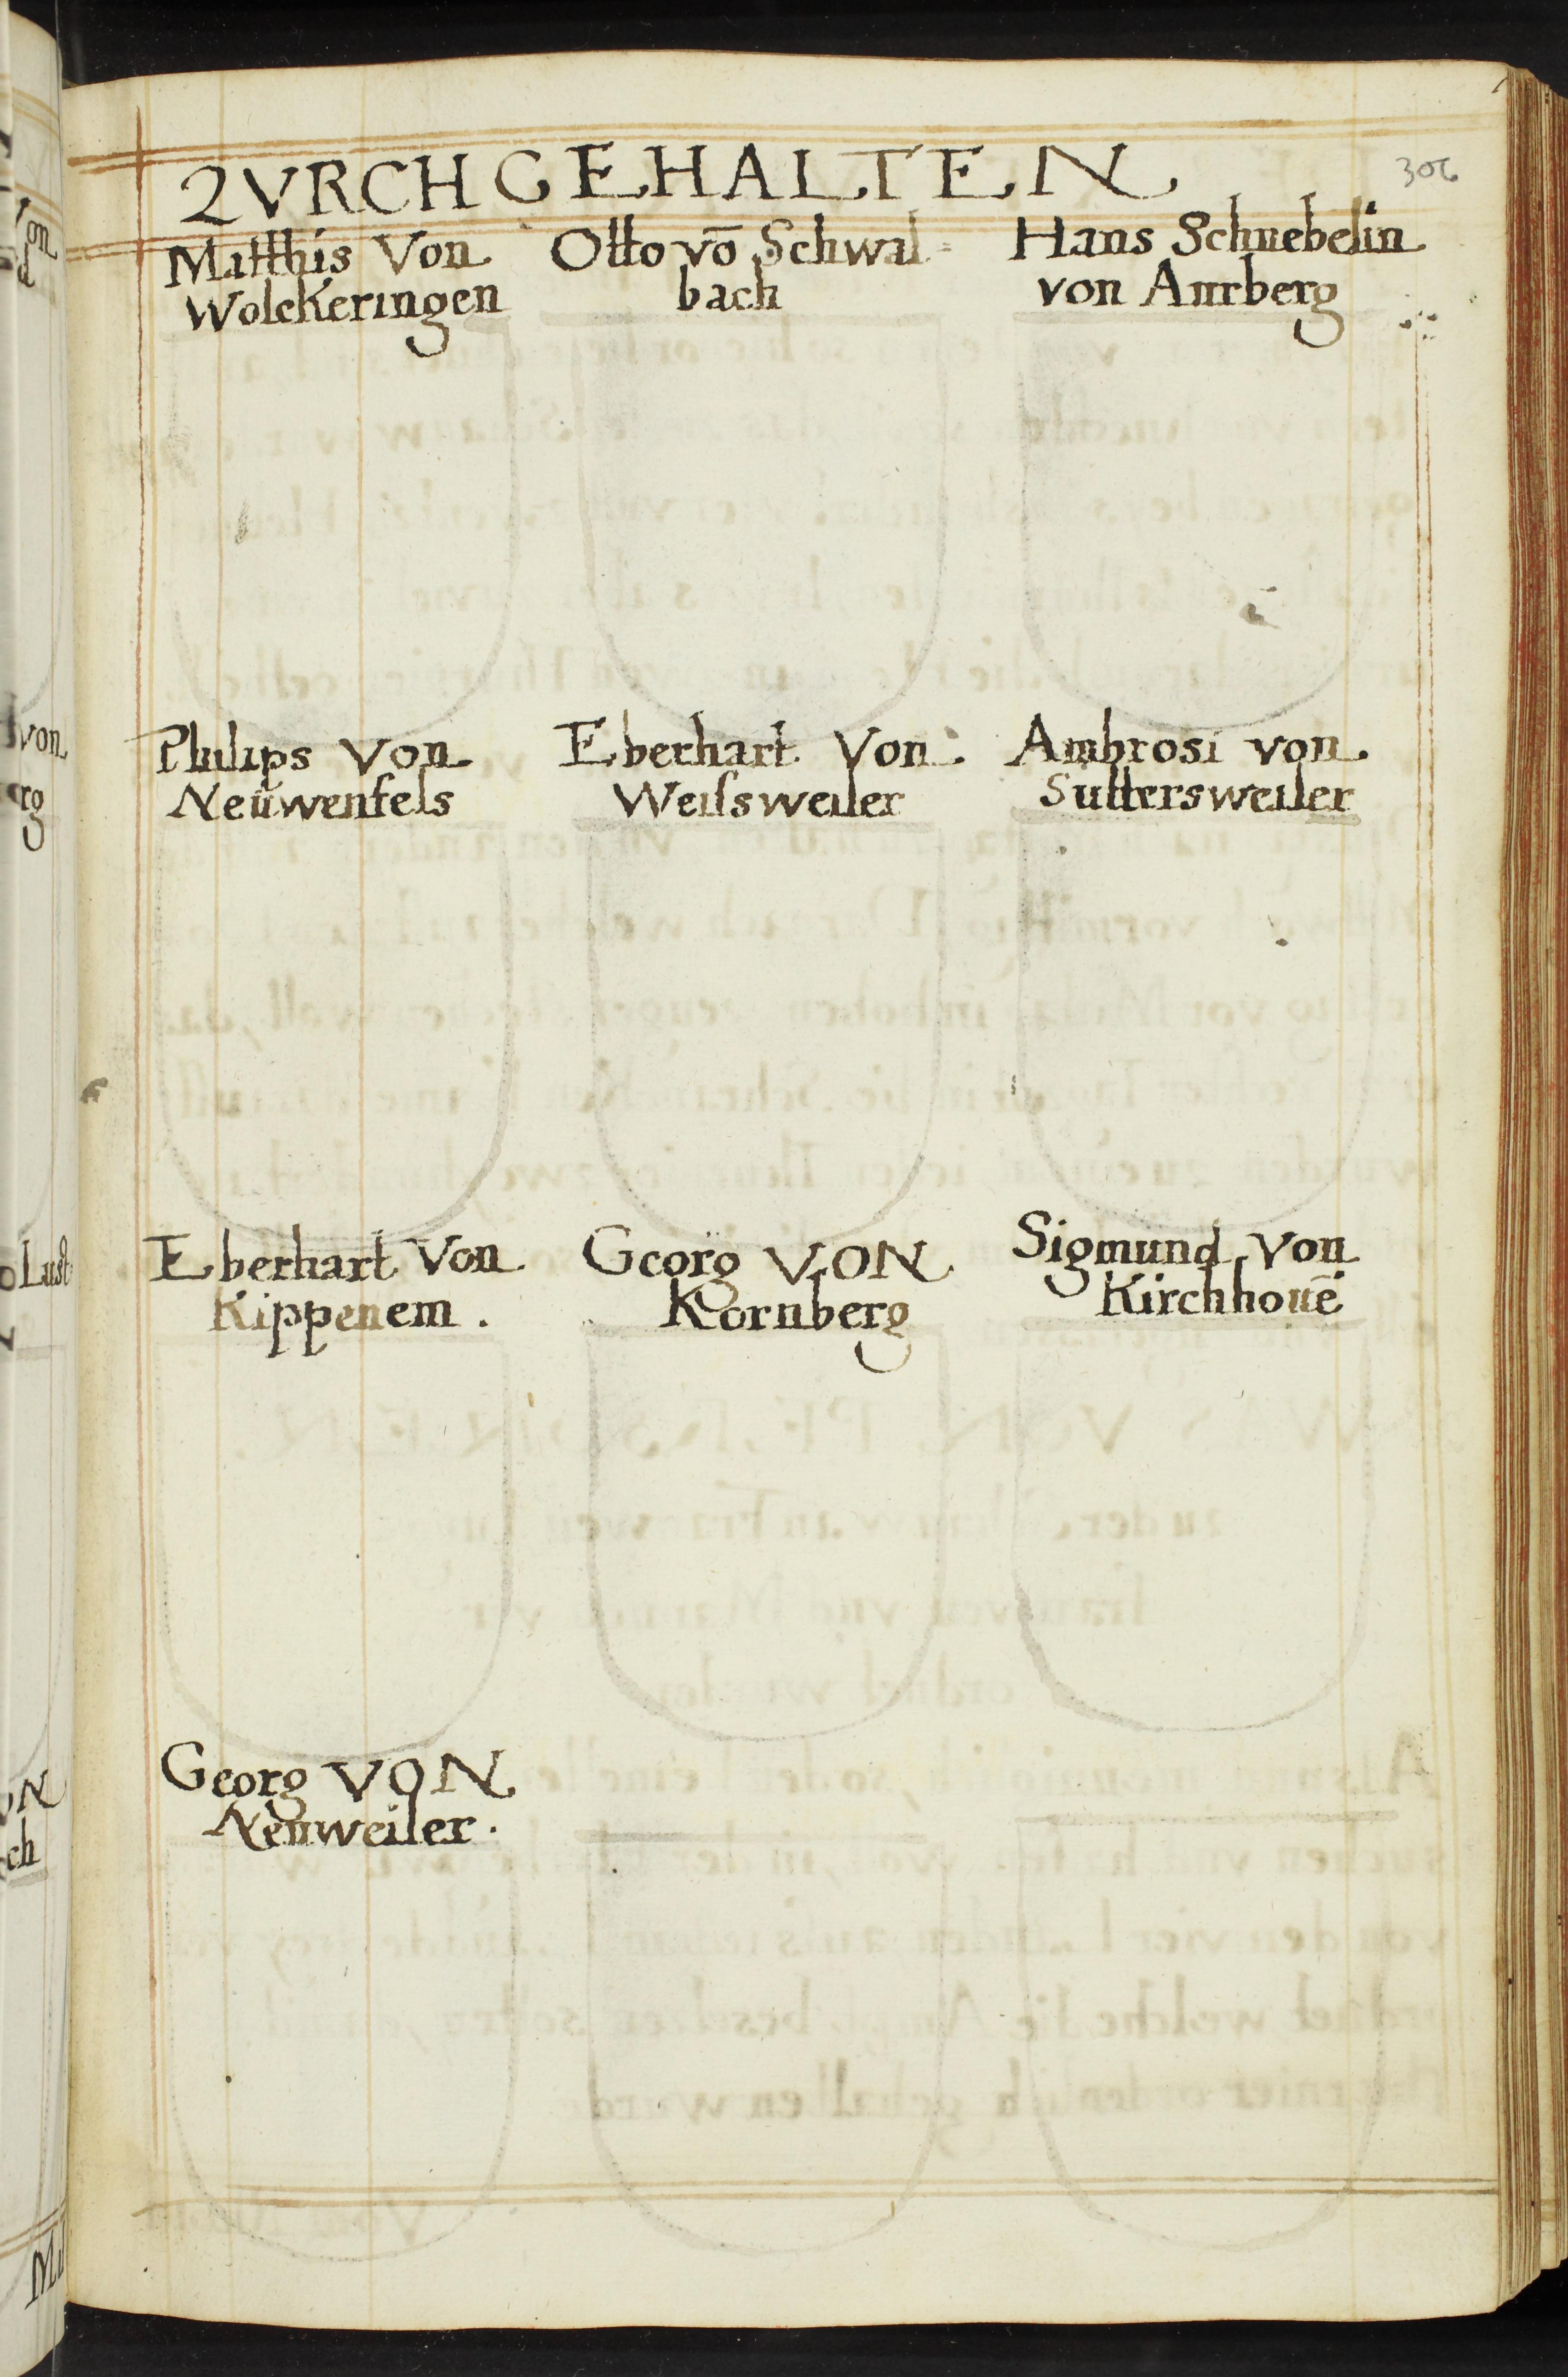 ZVRCH GEHALTEN
306
Matthis Von
Wolckeringen
Otto vō Schwal=
bach
Hans Schnebelin
von Anrberg
Philips von
Neüwenfels
Eberhart Von
Weilsweiler
Ambrosi von
Suttersweiler
Eberhart Von
Kippenem.
Georg VON
Kornberg
Sigmund Von
Kirchhouē
Georg VON
Neuweiler.